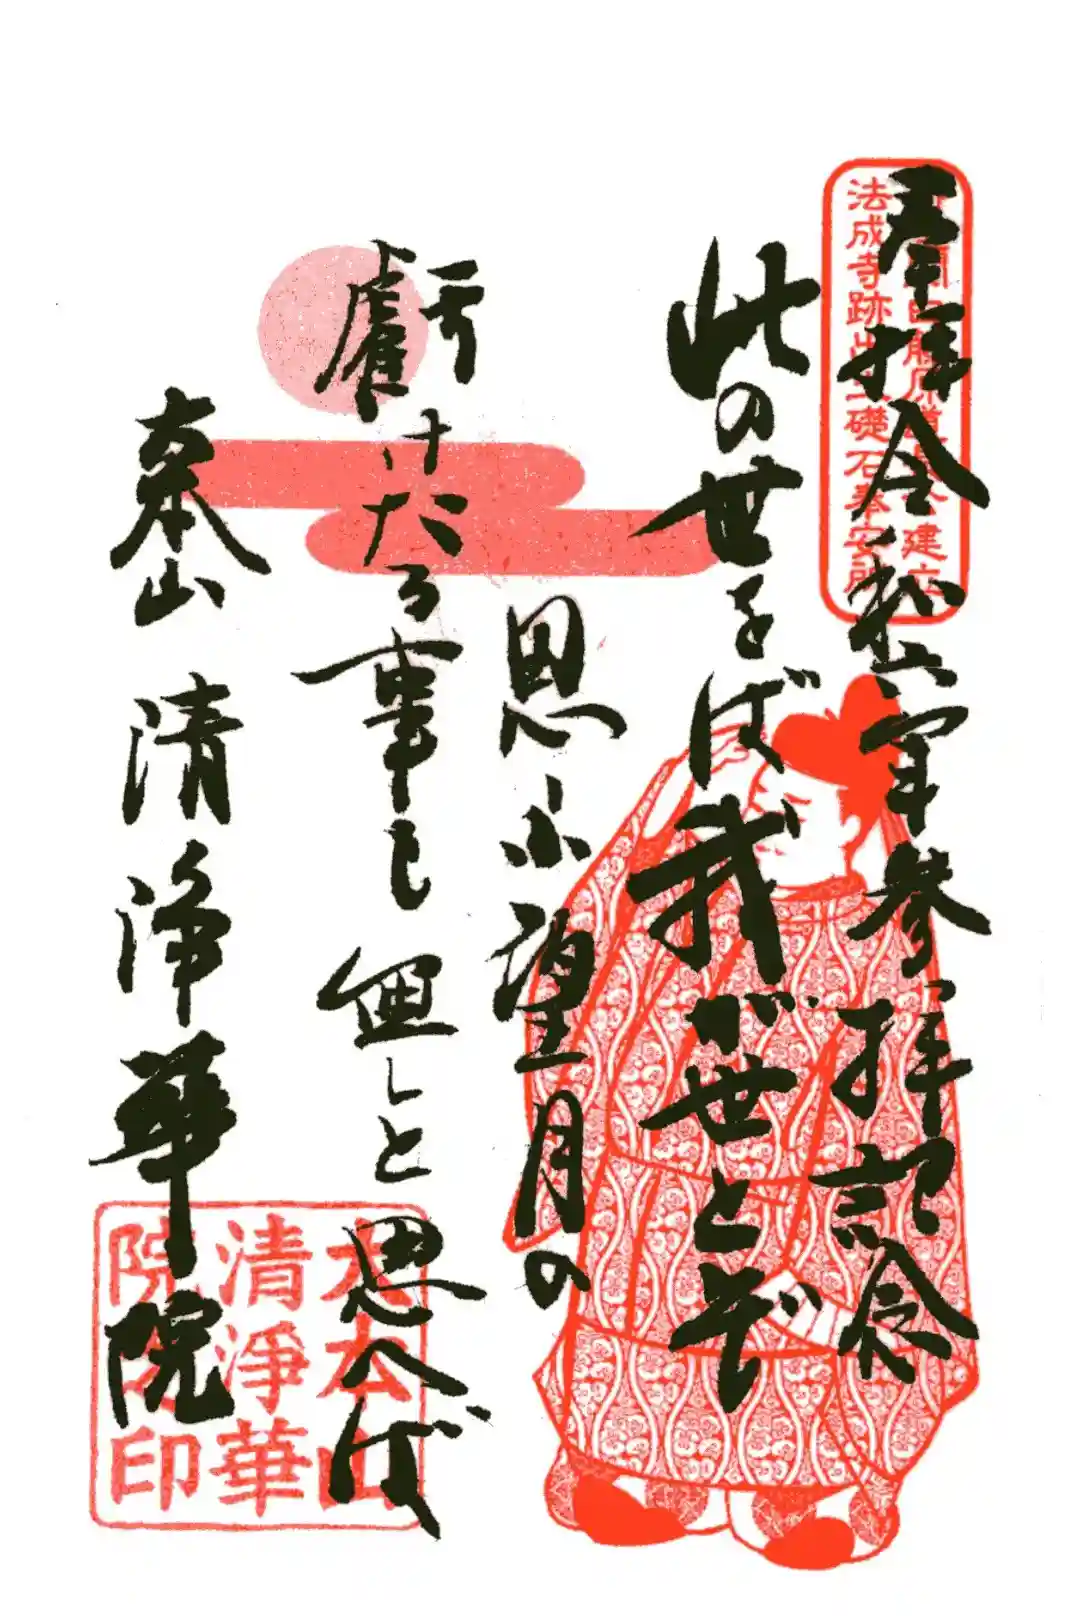 奉拝 令和六年参拝記念
関白藤原道長公建立
法成寺跡出土礎石奉安所
此の世をば我が世とぞ
思ふ望月の
虧けたる事も無しと思へば
本山 清浄華院
大本山
清浄華
院之印